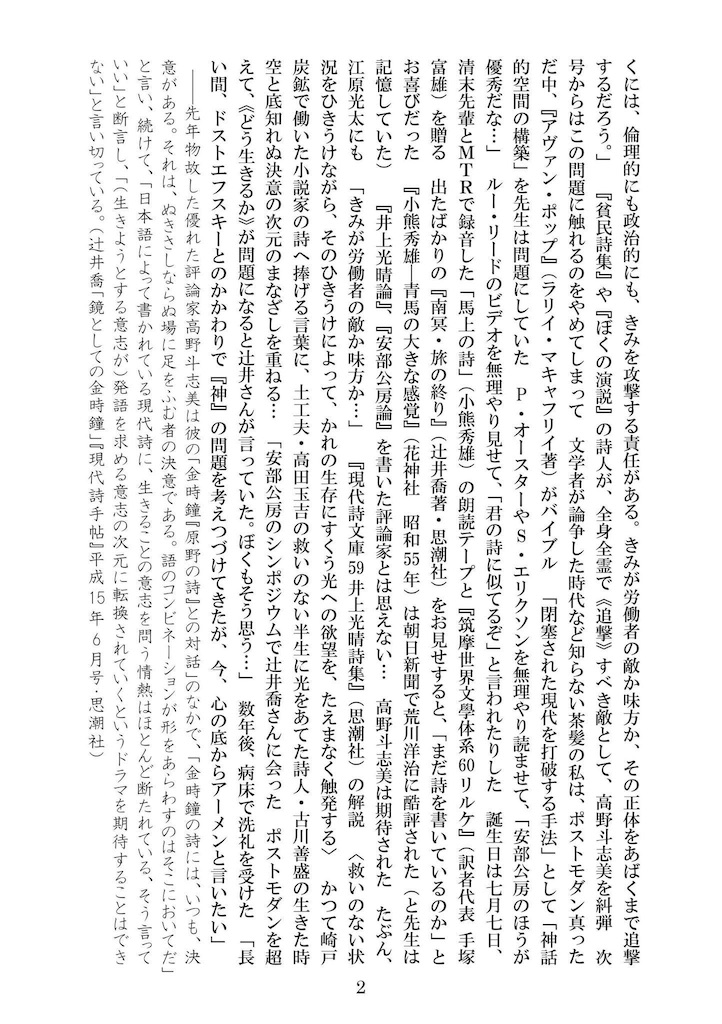 くには、倫理的にも政治的にも、きみを攻撃する責任がある。きみが労働者の敵か味方か、その正体をあばくまで追撃
するだろう。」　『貧民詩集』や『ぼくの演説』の詩人が、全身全霊で《追撃》すべき敵として、高野斗志美を糾弾　次
号からはこの問題に触れるのをやめてしまって　文学者が論争した時代など知らない茶髪の私は、ポストモダン真った
だ中、『アヴァン・ポップ』（ラリイ・マキャフリイ著）がバイブル　「閉塞された現代を打破する手法」として「神話
的空間の構築」を先生は問題にしていた　P・オースターやS・エリクソンを無理やり読ませて、「安部公房のほうが
優秀だな…」　ルー・リードのビデオを無理やり見せて、「君の詩に似てるぞ」と言われたりした　誕生日は七月七日、
清末先輩とMTRで録音した「馬上の詩」（小熊秀雄）の朗読テープと『筑摩世界文學体系60リルケ』（訳者代表　手塚
富雄）を贈る　出たばかりの『南冥・旅の終り』（辻井喬著・思潮社）をお見せすると、「まだ詩を書いているのか」と
お喜びだった　『小熊秀雄―青馬の大きな感覚』（花神社　昭和55年）は朝日新聞で荒川洋治に酷評された（と先生は
記憶していた）　『井上光晴論』、『安部公房論』を書いた評論家とは思えない…　高野斗志美は期待された　たぶん、
江原光太にも　「きみが労働者の敵か味方か…」　『現代詩文庫59井上光晴詩集』（思潮社）の解説　〈救いのない状
況をひきうけながら、そのひきうけによって、かれの生存にすくう光への欲望を、たえまなく触発する〉　かつて崎戸
炭鉱で働いた小説家の詩へ捧げる言葉に、土工夫・高田玉吉の救いのない半生に光をあてた詩人・古川善盛の生きた時
空と底知れぬ決意の次元のまなざしを重ねる…　「安部公房のシンポジウムで辻井喬さんに会った　ポストモダンを超
えて、《どう生きるか》が問題になると辻井さんが言っていた。ぼくもそう思う…」　数年後、病床で洗礼を受けた　「長
い間、ドストエフスキーとのかかわりで『神』の問題を考えつづけてきたが、今、心の底からアーメンと言いたい」
――先年物故した優れた評論家高野斗志美は彼の「金時鐘『原野の詩』との対話」のなかで、「金時鐘の詩には、いつも、決
意がある。それは、ぬきさしならぬ場に足をふむ者の決意である。語のコンビネーションが形をあらわすのはそこにおいてだ」
と言い、続けて、「日本語によって書かれている現代詩に、生きることの意志を問う情熱はほとんど断たれている、そう言って
いい」と断言し、「（生きようとする意志が）発語を求める意志の次元に転換されていくというドラマを期待することはでき
ない」と言い切っている。（辻井喬「鏡としての金時鐘」『現代詩手帖』平成15年6月号・思潮社）
2